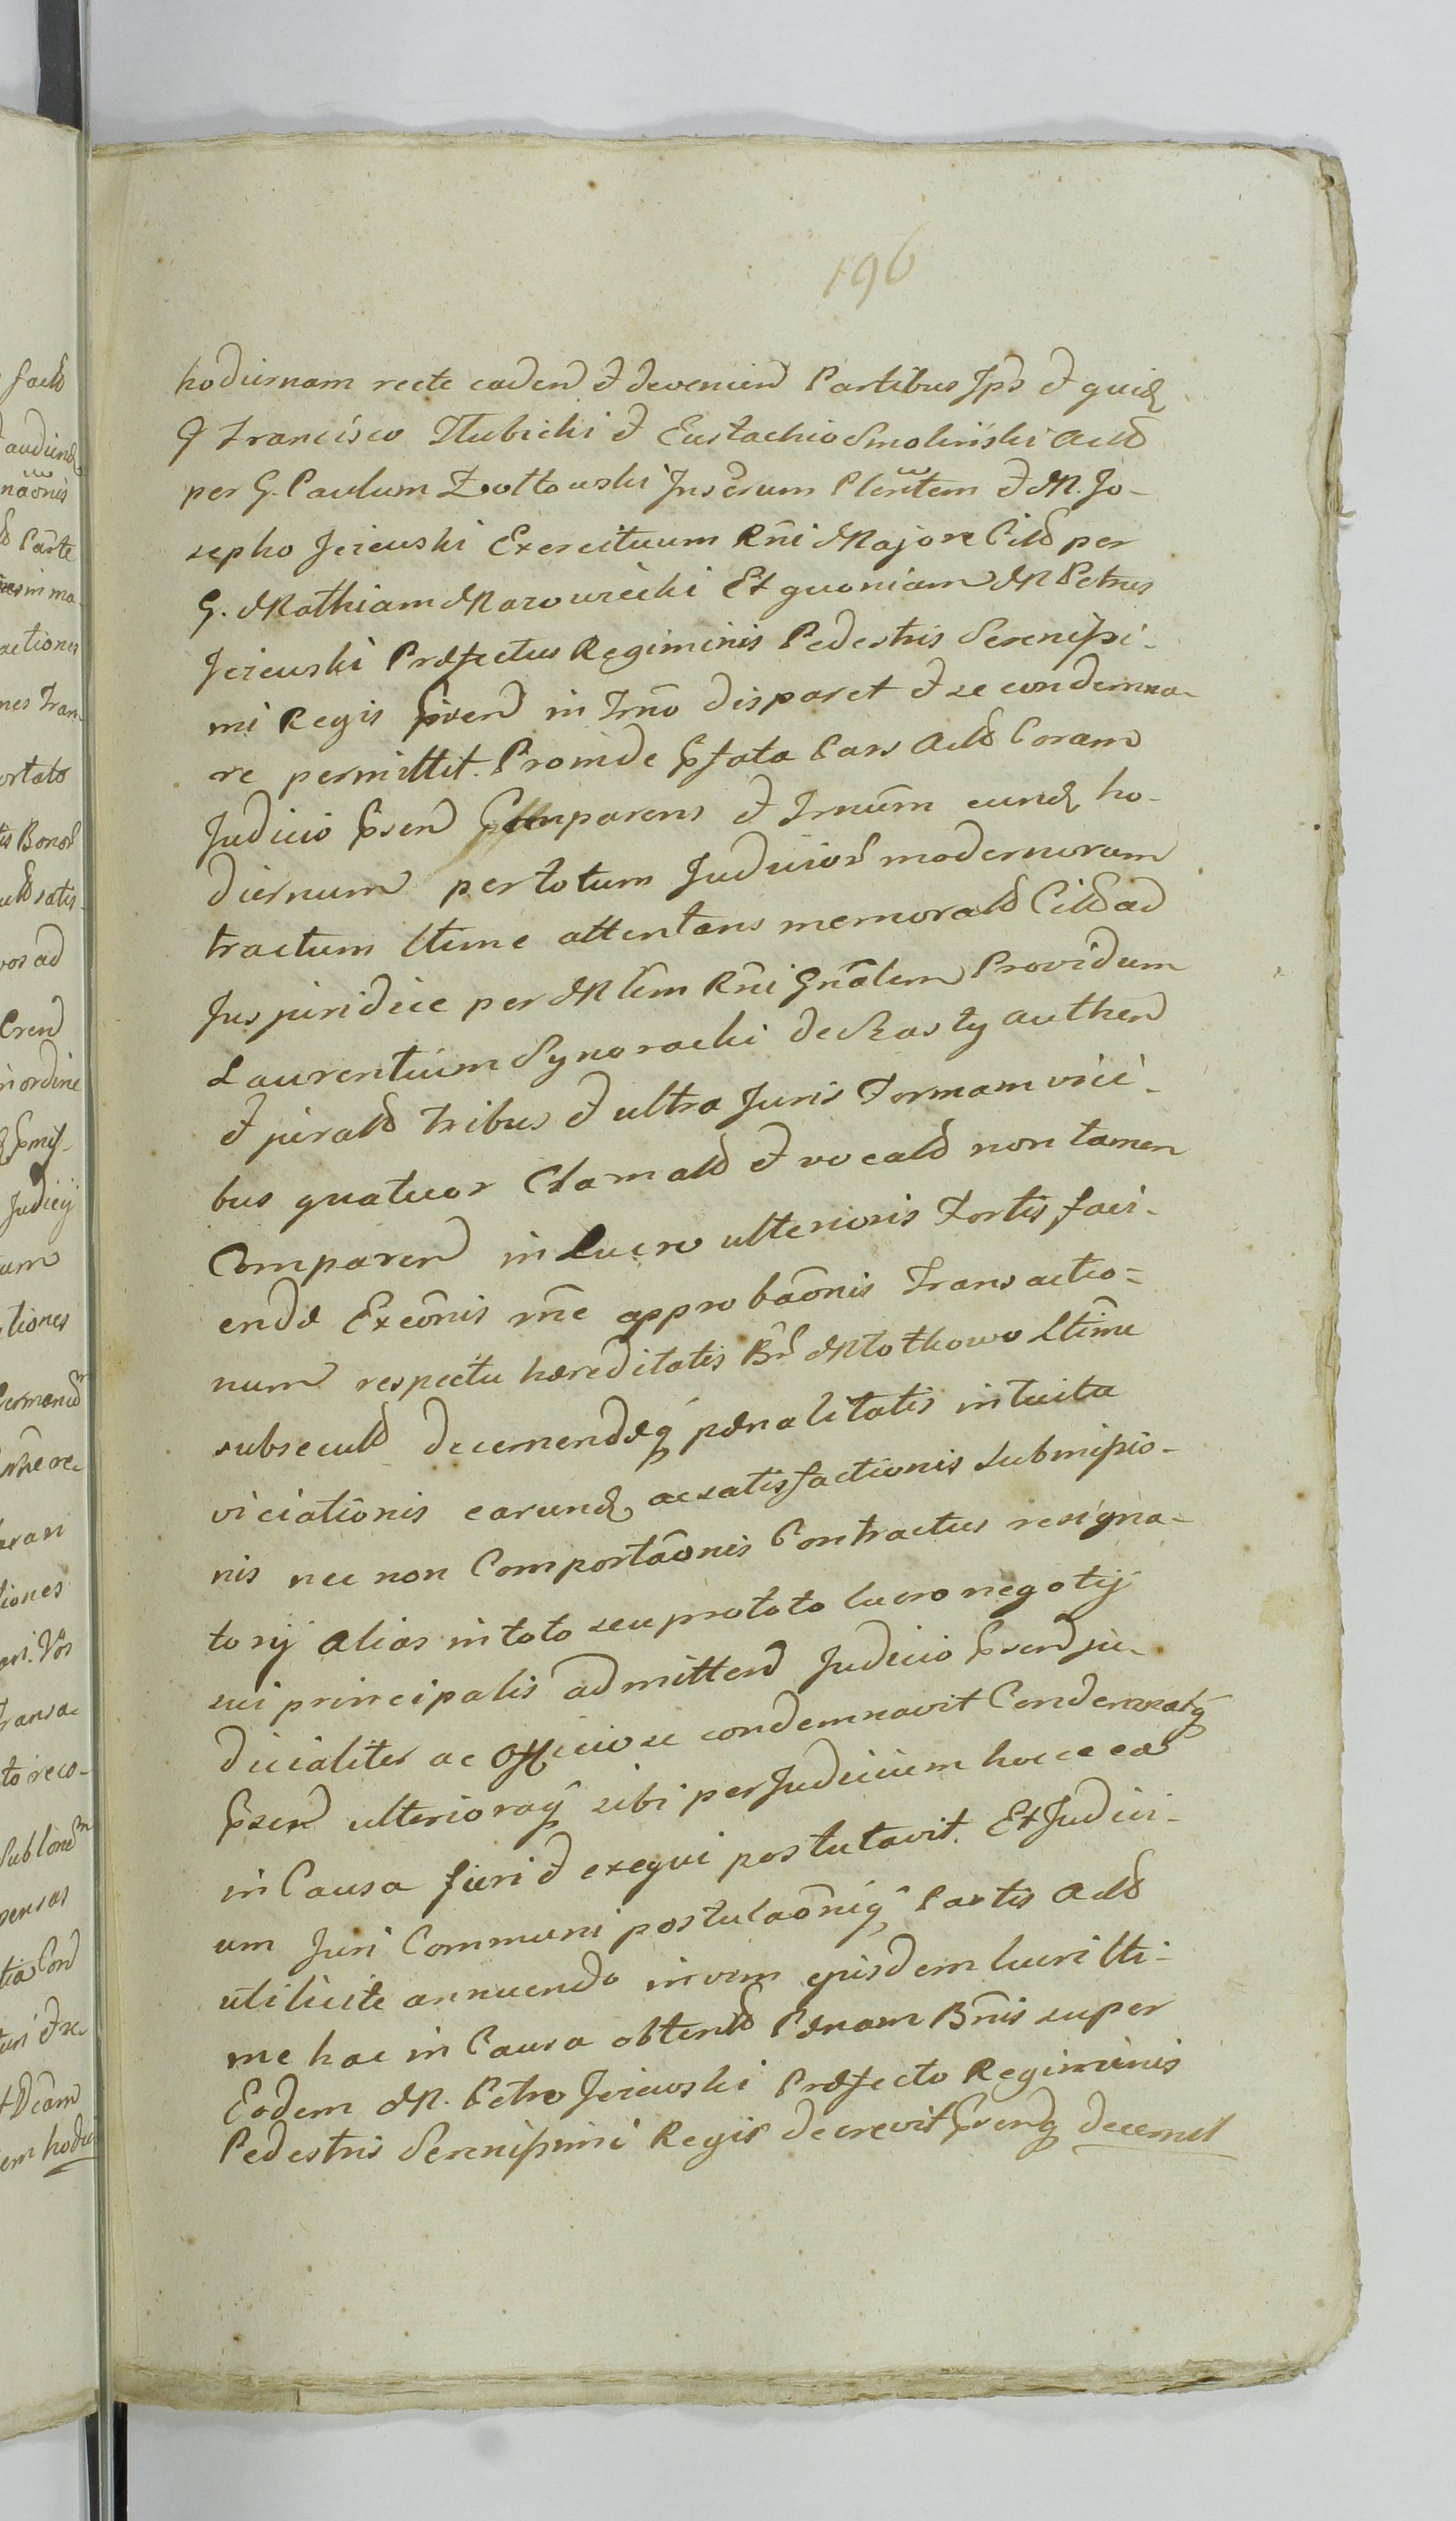 196
hodiernam recte caden et devenien Partibus Ips et quid
G Francisco Tlubicki et Eustachio Smoliński Actt
per G. Paulum Zołtowski Inferum Plentem et M. Jo-
sepho Jezewski Exercituum Rni Majore Citt per
G. Mathiam Mazowiecki Et quoniam M Petrus
Jezewski Præfectus Regiminis Pedestris Serenissi-
mi Regis pñen in Trno disparet et se condemna-
re permittit. Proinde pfata Pars Actt Coram
Judicio psen Comparens et Trnum eund ho-
diernum per totum Judicior modernorum
tractum ltime attentans memoratt Citt ad
Jus juridice per Mlem Rni Gnalem Providum
Laurentium Synoracki de Szasty authen
et juratt tribus et ultra Juris Formam vici-
bus quatuor Clamatt et vocatt non tamen
Comparen in Lucro ulterioris Fortis faci-
endæ Exeonis rne approbaonis Transactio-
num respectu hæreditatis Br Młotkowo ltime
subsecutt decernendæq pænalitatis intuitu
viciationis earund ac satisfactionis submissio-
nis nec non Comportaonis Contractus resigna-
torij alias in toto seu pro toto lucro negotij
sui principalis admitten Judicio psen ju-
dicialiter ac officiose condemnavit Condemnatq
psen ulterioraq sibi per Judicium hocce ea
in Causa fieri et exequi postulavit. Et Judici-
um Juri Communi postulaoniq Partis Actt
uti licite annuendo in vim ejusdem lucri lti-
me hac in Causa obtentt Pænam Bnis super
Eodem M. Petro Jezewski Præfecto Regiminis
Pedestris Serenissimi Regis decrevit psenq decernit